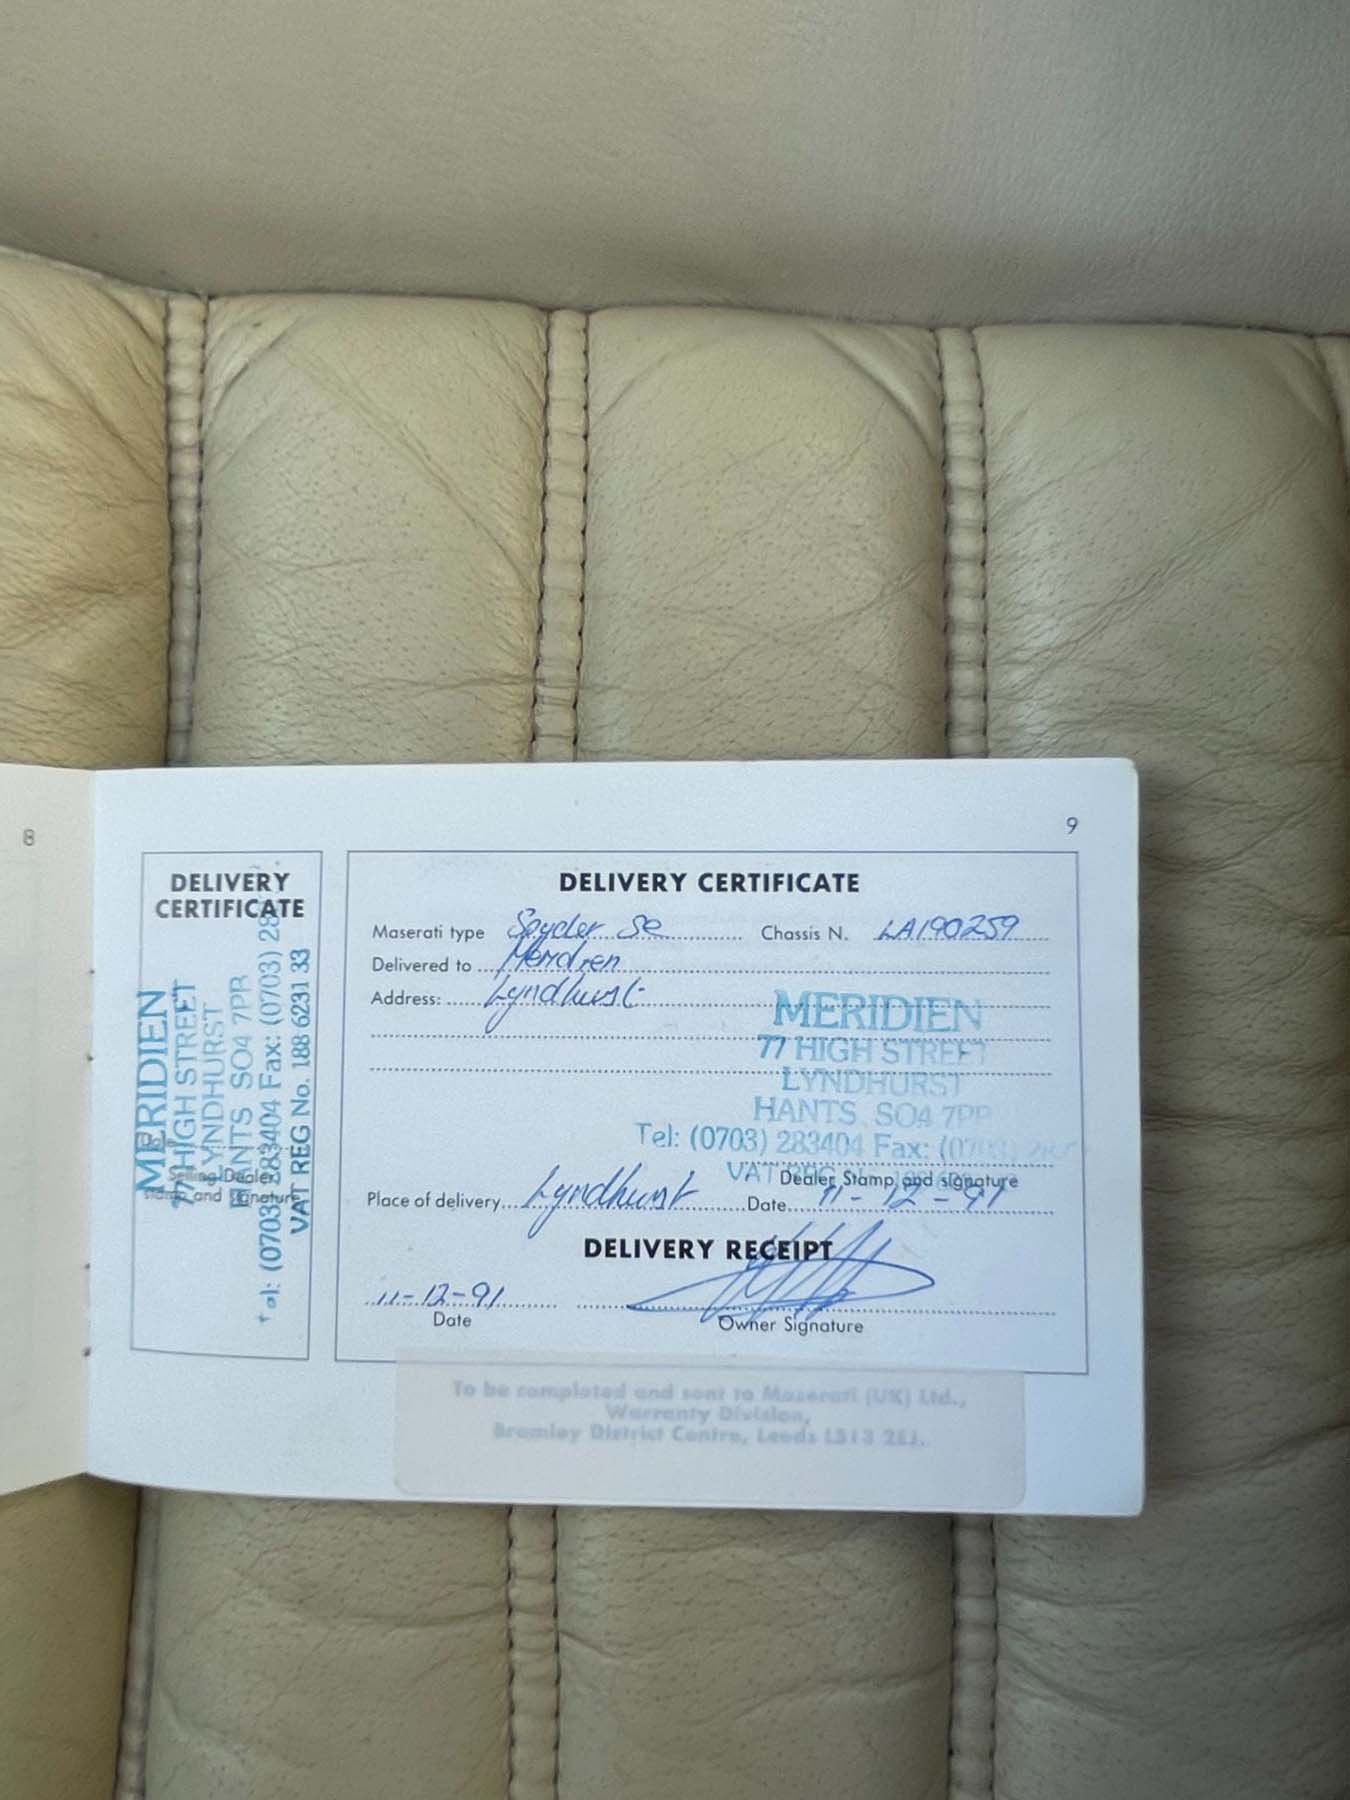 8
9
DELIVERY
CERTIFICATE
MERIDIEN
77 HIGH STREET
LYNDHURST
HANTS SO4 7PR
Tel: (0703) 283404 Fax: (0703) 28
VAT REG No. 188 6231 33
Date
Selling Dealer
stamp and signature
DELIVERY CERTIFICATE
Maserati type Spyder Se Chassis N. LA190259
Delivered to Meridien
Address: Lyndhurst
MERIDIEN
77 HIGH STREET
LYNDHURST
HANTS SO4 7PR
Tel: (0703) 283404 Fax: (0703)
VAT REG
Dealer Stamp and signature
Place of delivery Lyndhurst Date 11-12-91
DELIVERY RECEIPT
11-12-91
Date Owner Signature
To be completed and sent to Maserati (UK) Ltd.,
Warranty Division,
Bramley District Centre, Leeds LS13 2EJ.